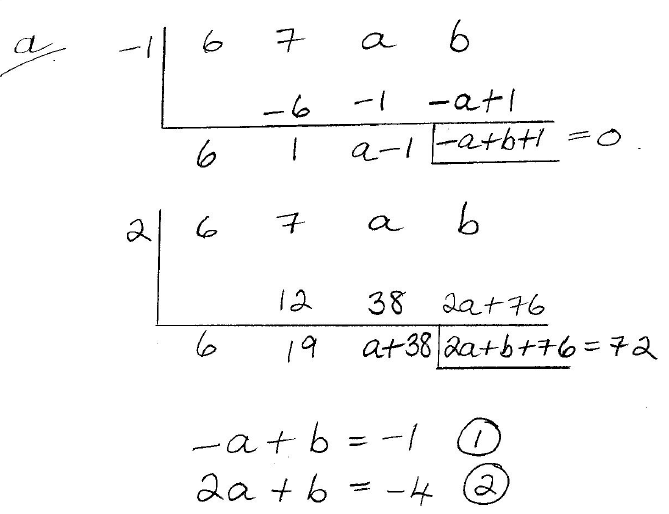 a -1 6 7 a b
-6 -1 -a+1
6 1 a-1 -a+b+1 = 0.
2 6 7 a b
12 38 2a+76
6 19 a+38 2a+b+76 = 72
-a + b = -1 ①
2a + b = -4 ②